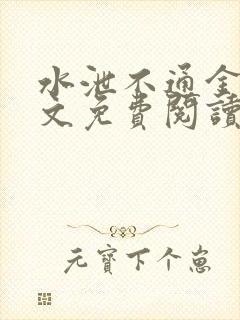 水泄不通全
文免費閱讀
元寶下个崽